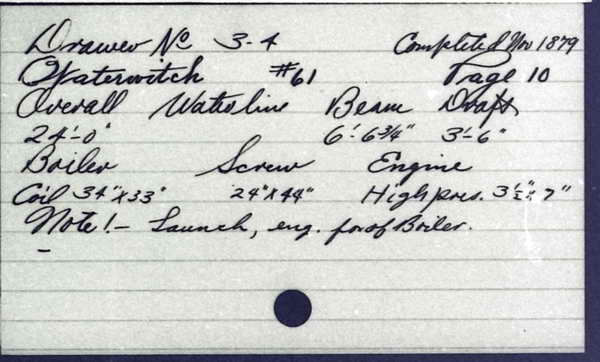 Drawer No 3-4 Completed Nov 1879
Waterwitch #61 Page 10
Overall Waterline Beam Draft
24'-0" 6'-6 3/4" 3'-6"
Boiler Screw Engine
Coil 34"x33" 24"x44" High pres. 3 1/2" : 7"
Note! - Launch, eng. for'd of Boiler.
-